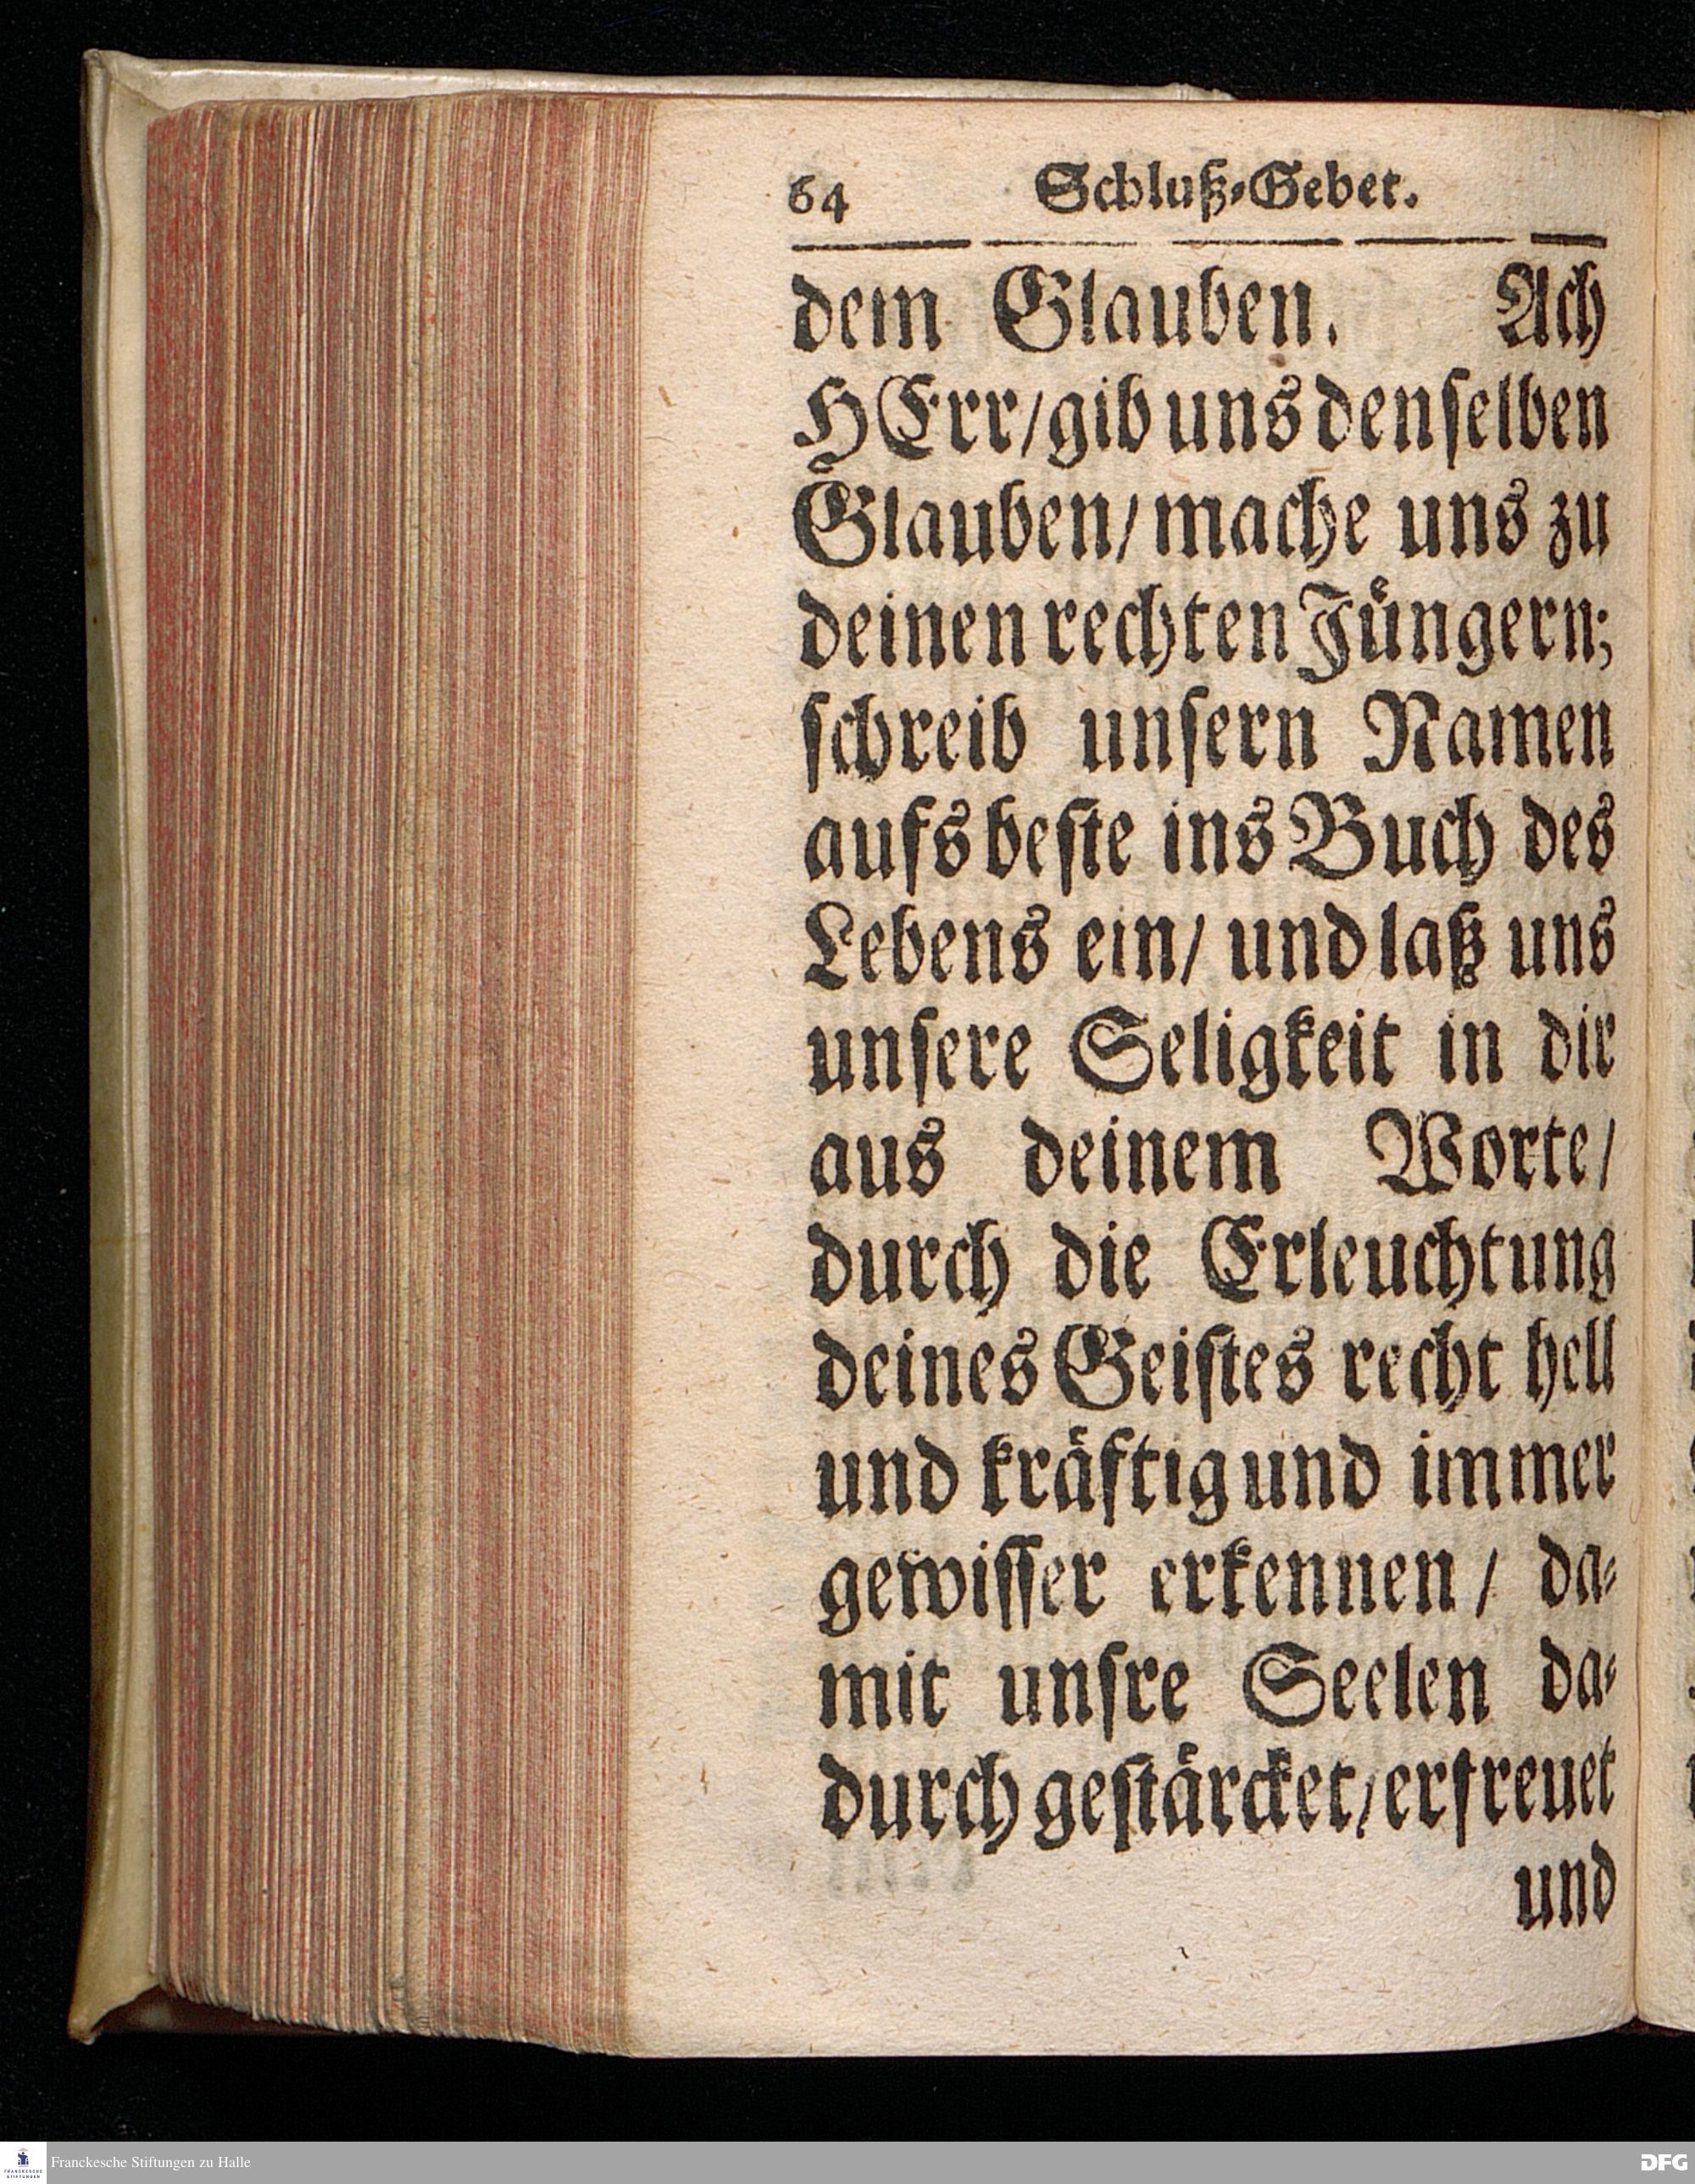 64 Schluß-Gebet.
dem Glauben. Ach
HErr/gib uns denselben
Glauben/mache uns zu
deinen rechten Jüngern;
schreib unsern Namen
aufs beste ins Buch des
Lebens ein/ und laß uns
unsere Seligkeit in dir
aus deinem Worte/
durch die Erleuchtung
deines Geistes recht hell
und kräftig und immer
gewisser erkennen/ da-
mit unsre Seelen da-
durch gestärcket/erfreuet
und
FRANCKESCHE
STIFTUNGEN
Franckesche Stiftungen zu Halle
DFG